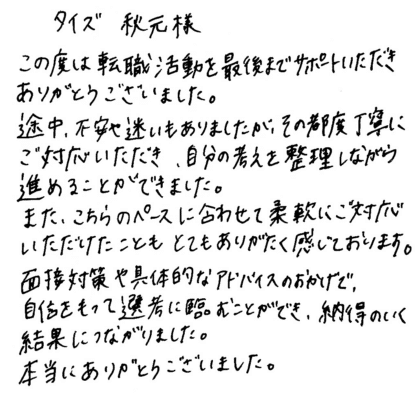 タイズ 秋元様
この度は転職活動を最後までサポートいただき
ありがとうございました。
途中、不安や迷いもありましたが、その都度丁寧に
ご対応いただき、自分の考えを整理しながら
進めることができました。
また、こちらのペースに合わせて柔軟にご対応
いただけたことも とてもありがたく感じております。
面接対策や具体的なアドバイスのおかげで、
自信をもって選考に臨むことができ、納得のいく
結果につながりました。
本当にありがとうございました。